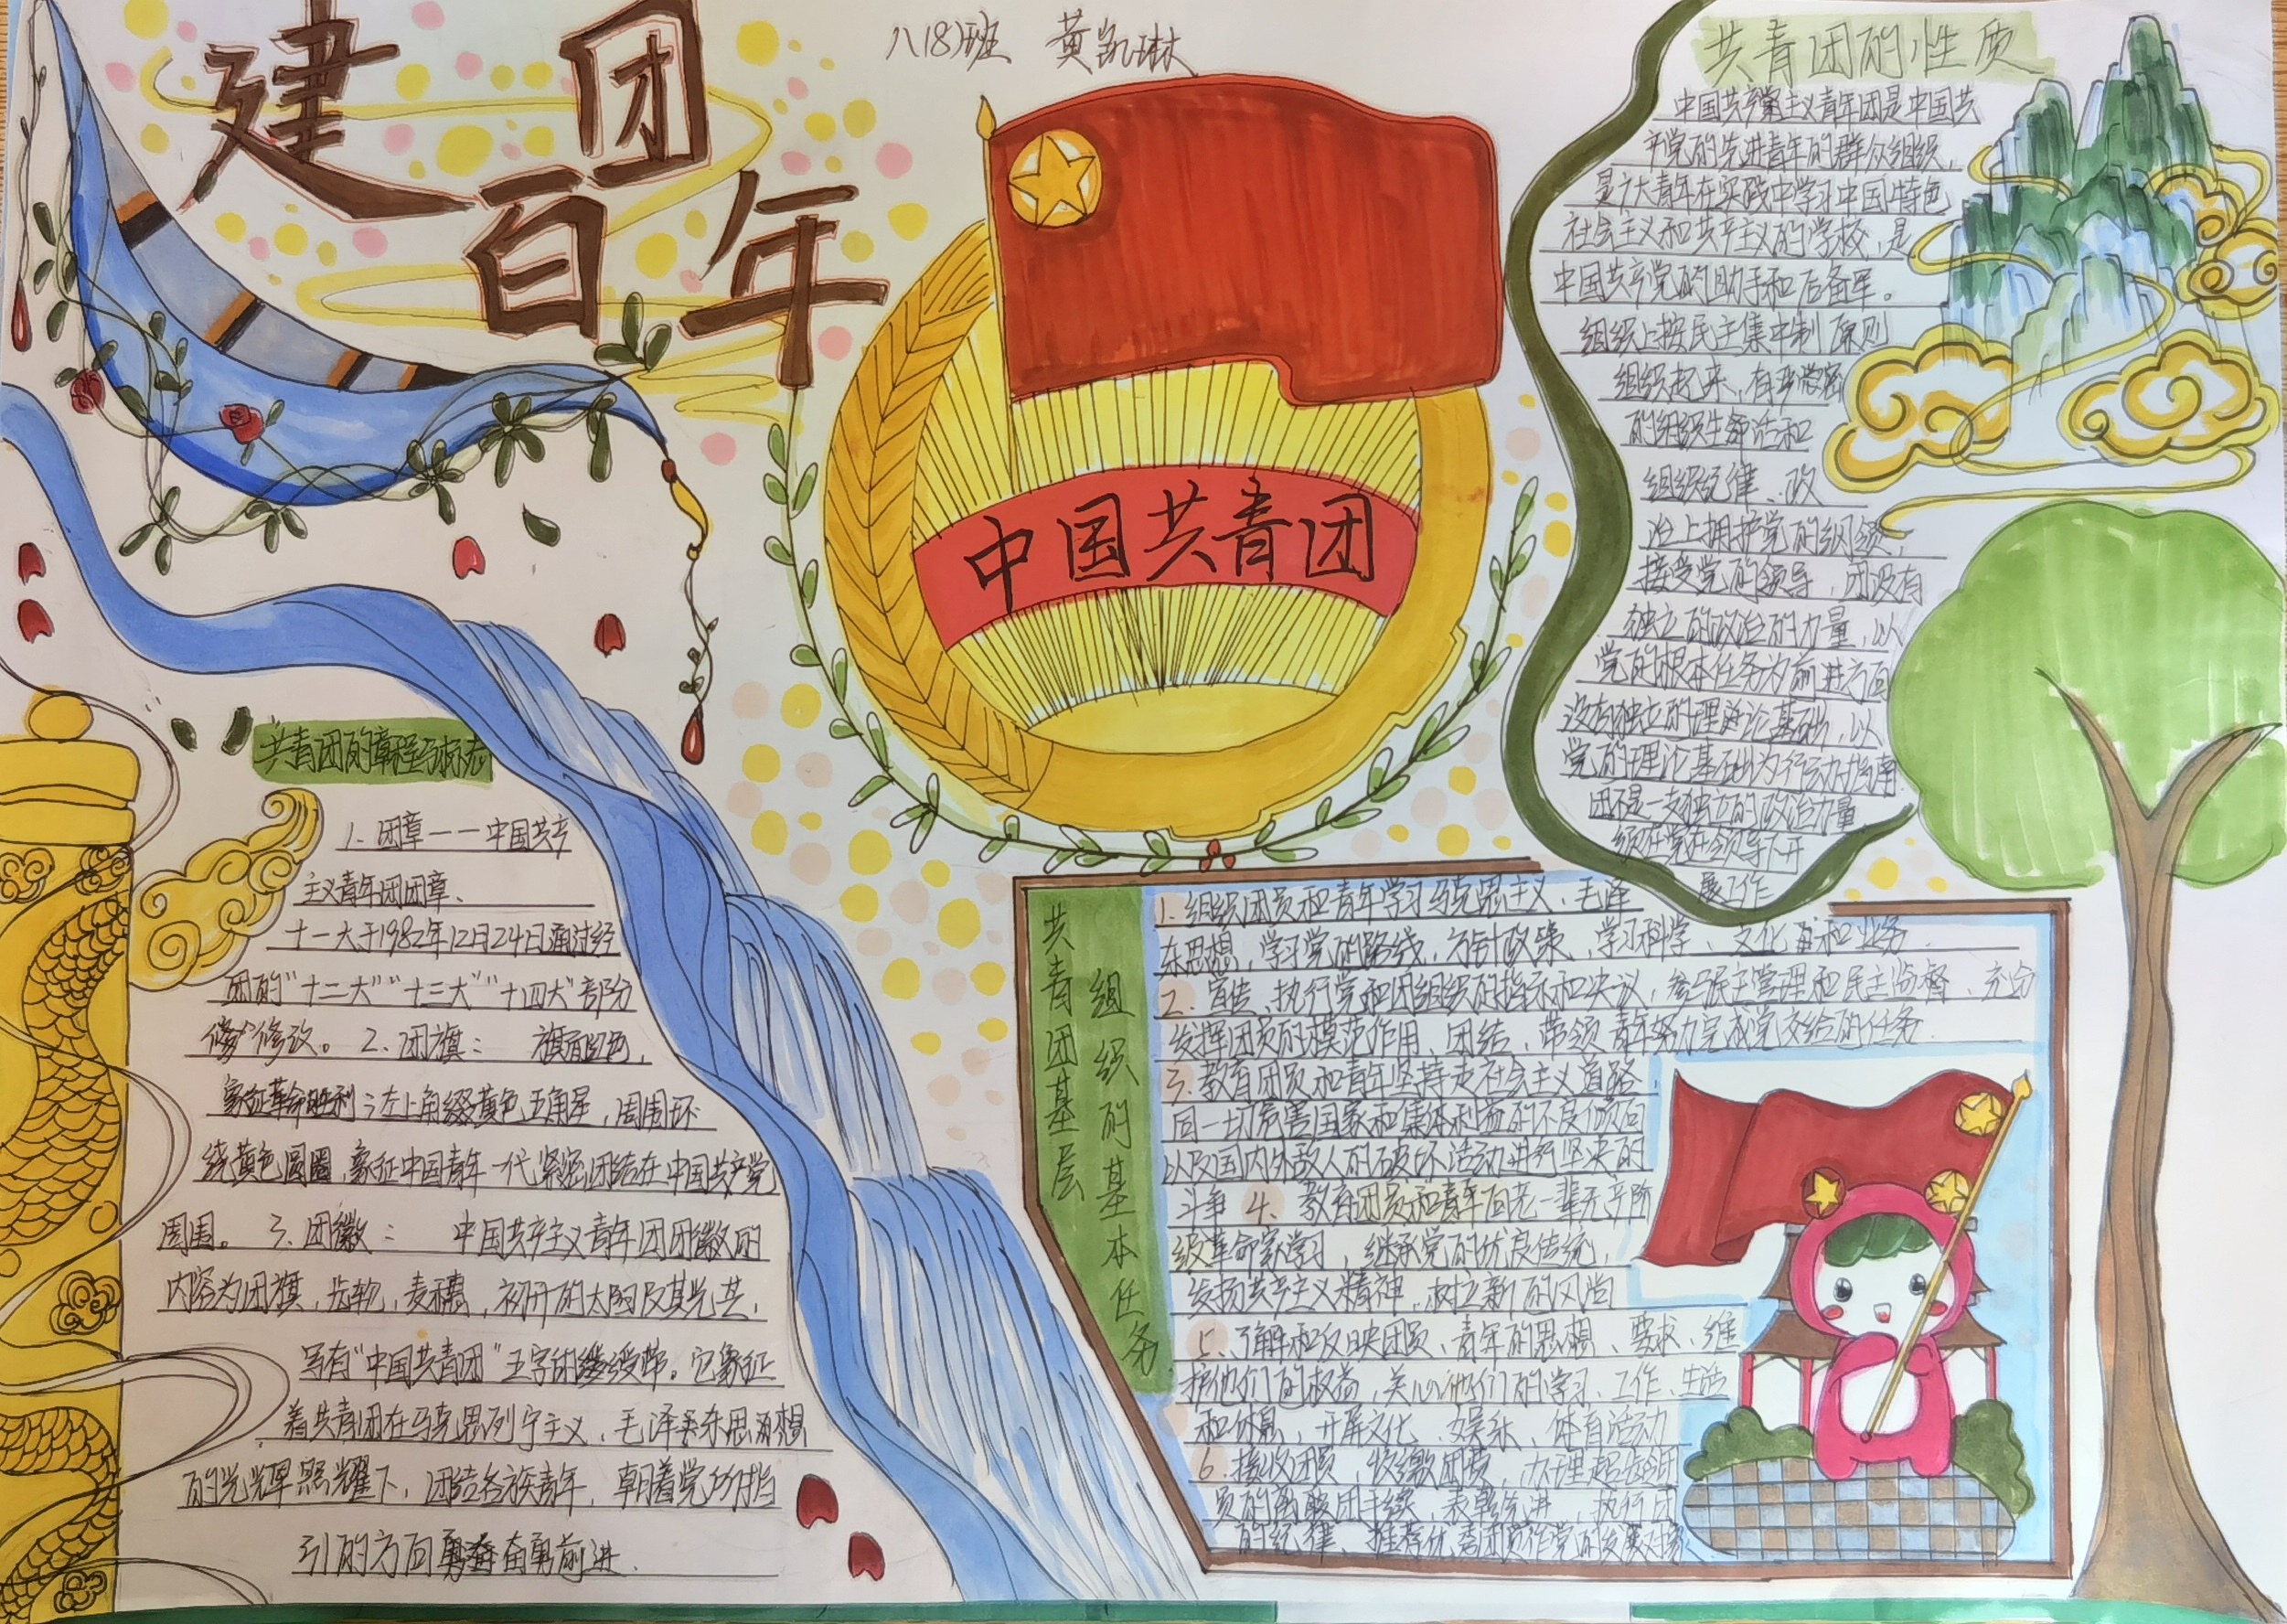 建团
百年
八(8)班 黄凯琳
中国共青团
共青团的性质
中国共产主义青年团是中国共
产党的先进青年的群众组织,
是广大青年在实践中学习中国特色
社会主义和共产主义的学校,是
中国共产党的助手和后备军。
组织上按民主集中制原则
组织起来,有严密
的组织生活和
组织纪律、政
治上拥护党的纲领,
接受党的领导,团没有
独立的政治的力量,以
党的根本任务为前进方向
没有独立的理论基础,以
党的理论基础为行动指南
团不是一支独立的政治力量
须在党在领导下开
展工作
共青团的章程与标志
1、团章——中国共产
主义青年团团章、
十一大于1982年12月24日通过经
团的“十二大”“十三大”“十四大”部分
修改。2、团旗: 旗面红色,
象征革命胜利;左上角缀黄色五角星,周围环
绕黄色圆圈,象征中国青年一代紧密团结在中国共产党
周围。3、团徽: 中国共产主义青年团团徽的
内容为团旗,齿轮,麦穗,初升的太阳及其光芒,
写有“中国共青团”五字的绶带。它象征
着共青团在马克思列宁主义,毛泽东思想
的光辉照耀下,团结各族青年,朝着党所指
引的方向奋勇前进.
共青团基层
组织的基本任务
1、组织团员和青年学习马克思主义、毛泽
东思想,学习党的路线,方针政策、学习科学、文化和业务.
2、宣传、执行党和团组织的指示和决议,参与民主管理和民主监督、充分
发挥团员的模范作用、团结、带领青年努力完成党交给的任务.
3、教育团员和青年坚持走社会主义道路,
同一切危害国家和集体利益的不良倾向
以及国内外敌人的破坏活动进行坚决的
斗争 4、教育团员和青年向老一辈无产阶
级革命家学习,继承党的优良传统,
发扬共产主义精神,树立新的风尚
5、了解和反映团员、青年的思想、要求、维
护他们的权益,关心他们的学习、工作、生活
和休息,开展文化、娱乐、体育活动
6、接收团员,收缴团费,办理超龄团
员的离团手续,表彰先进,执行团
的纪律、推荐优秀团员作党的发展对象